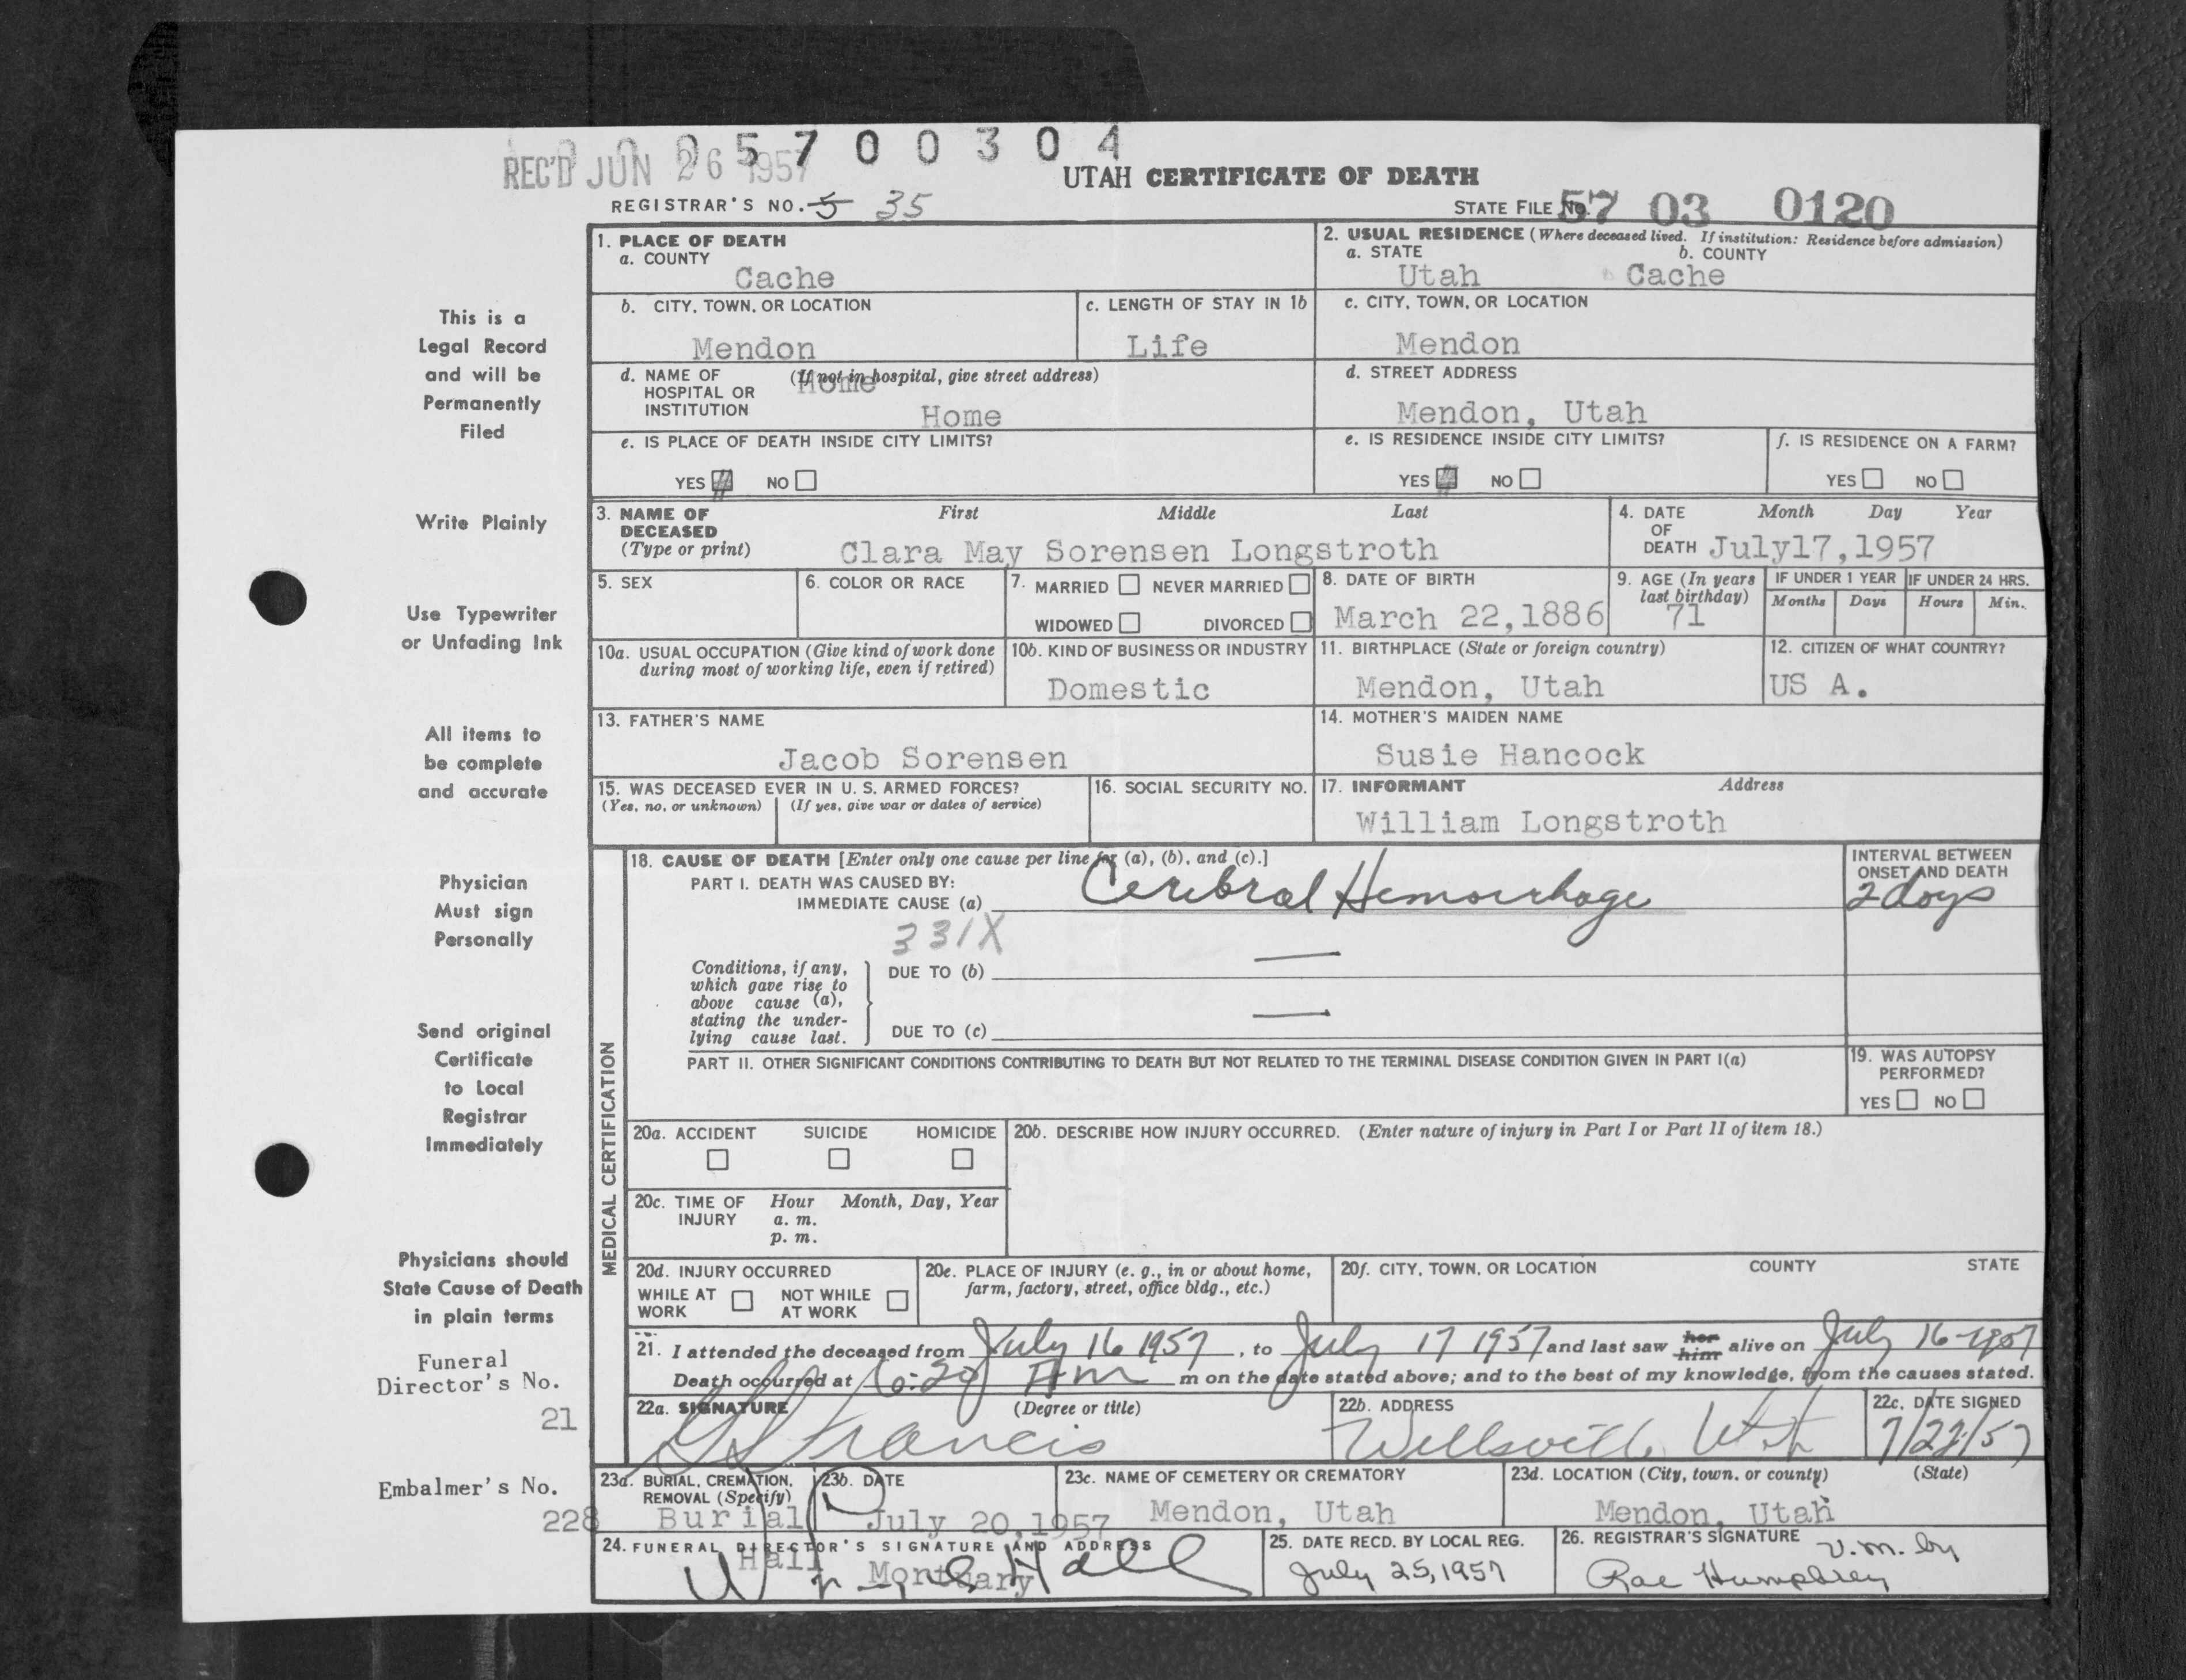 5 7 0 0 3 0 4
REC'D JUN 26 1957
UTAH CERTIFICATE OF DEATH
REGISTRAR'S NO. 5 35
STATE FILE No. 57 03 0120
1. PLACE OF DEATH
a. COUNTY
Cache
2. USUAL RESIDENCE (Where deceased lived. If institution: Residence before admission)
a. STATE b. COUNTY
Utah Cache
b. CITY, TOWN, OR LOCATION
Mendon
c. LENGTH OF STAY IN 1b
Life
c. CITY, TOWN, OR LOCATION
Mendon
d. NAME OF HOSPITAL OR INSTITUTION (If not in hospital, give street address)
Home
Home
d. STREET ADDRESS
Mendon, Utah
e. IS PLACE OF DEATH INSIDE CITY LIMITS?
YES NO
e. IS RESIDENCE INSIDE CITY LIMITS?
YES NO
f. IS RESIDENCE ON A FARM?
YES NO
3. NAME OF DECEASED (Type or print)
First Middle Last
Clara May Sorensen Longstroth
4. DATE OF DEATH
Month Day Year
July17,1957
5. SEX
6. COLOR OR RACE
7. MARRIED NEVER MARRIED
WIDOWED DIVORCED
8. DATE OF BIRTH
March 22,1886
9. AGE (In years last birthday)
71
IF UNDER 1 YEAR
Months Days
IF UNDER 24 HRS.
Hours Min.
10a. USUAL OCCUPATION (Give kind of work done during most of working life, even if retired)
10b. KIND OF BUSINESS OR INDUSTRY
Domestic
11. BIRTHPLACE (State or foreign country)
Mendon, Utah
12. CITIZEN OF WHAT COUNTRY?
US A.
13. FATHER'S NAME
Jacob Sorensen
14. MOTHER'S MAIDEN NAME
Susie Hancock
15. WAS DECEASED EVER IN U. S. ARMED FORCES?
(Yes, no, or unknown) (If yes, give war or dates of service)
16. SOCIAL SECURITY NO.
17. INFORMANT Address
William Longstroth
MEDICAL CERTIFICATION
18. CAUSE OF DEATH [Enter only one cause per line for (a), (b), and (c).]
PART I. DEATH WAS CAUSED BY:
IMMEDIATE CAUSE (a) Cerebral Hemorrhage
INTERVAL BETWEEN ONSET AND DEATH
2 days
331X
Conditions, if any, which gave rise to above cause (a), stating the underlying cause last.
DUE TO (b) —
DUE TO (c) —
PART II. OTHER SIGNIFICANT CONDITIONS CONTRIBUTING TO DEATH BUT NOT RELATED TO THE TERMINAL DISEASE CONDITION GIVEN IN PART I(a)
19. WAS AUTOPSY PERFORMED?
YES NO
20a. ACCIDENT SUICIDE HOMICIDE
20b. DESCRIBE HOW INJURY OCCURRED. (Enter nature of injury in Part I or Part II of item 18.)
20c. TIME OF INJURY
Hour Month, Day, Year
a. m.
p. m.
20d. INJURY OCCURRED
WHILE AT WORK NOT WHILE AT WORK
20e. PLACE OF INJURY (e. g., in or about home, farm, factory, street, office bldg., etc.)
20f. CITY, TOWN, OR LOCATION COUNTY STATE
21. I attended the deceased from July 16 1957, to July 17 1957 and last saw her him alive on July 16-1957
Death occurred at 6:20 Am m on the date stated above; and to the best of my knowledge, from the causes stated.
22a. SIGNATURE (Degree or title)
Francis
22b. ADDRESS
Wellsville Utah
22c. DATE SIGNED
7/22/57
23a. BURIAL, CREMATION, REMOVAL (Specify)
Burial
23b. DATE
July 20,1957
23c. NAME OF CEMETERY OR CREMATORY
Mendon, Utah
23d. LOCATION (City, town, or county) (State)
Mendon, Utah
24. FUNERAL DIRECTOR'S SIGNATURE AND ADDRESS
Hall Mortuary
Hall
25. DATE RECD. BY LOCAL REG.
July 25, 1957
26. REGISTRAR'S SIGNATURE
V.M. by
Rae Humphrey
This is a
Legal Record
and will be
Permanently
Filed
Write Plainly
Use Typewriter
or Unfading Ink
All items to
be complete
and accurate
Physician
Must sign
Personally
Send original
Certificate
to Local
Registrar
Immediately
Physicians should
State Cause of Death
in plain terms
Funeral
Director's No.
21
Embalmer's No.
228